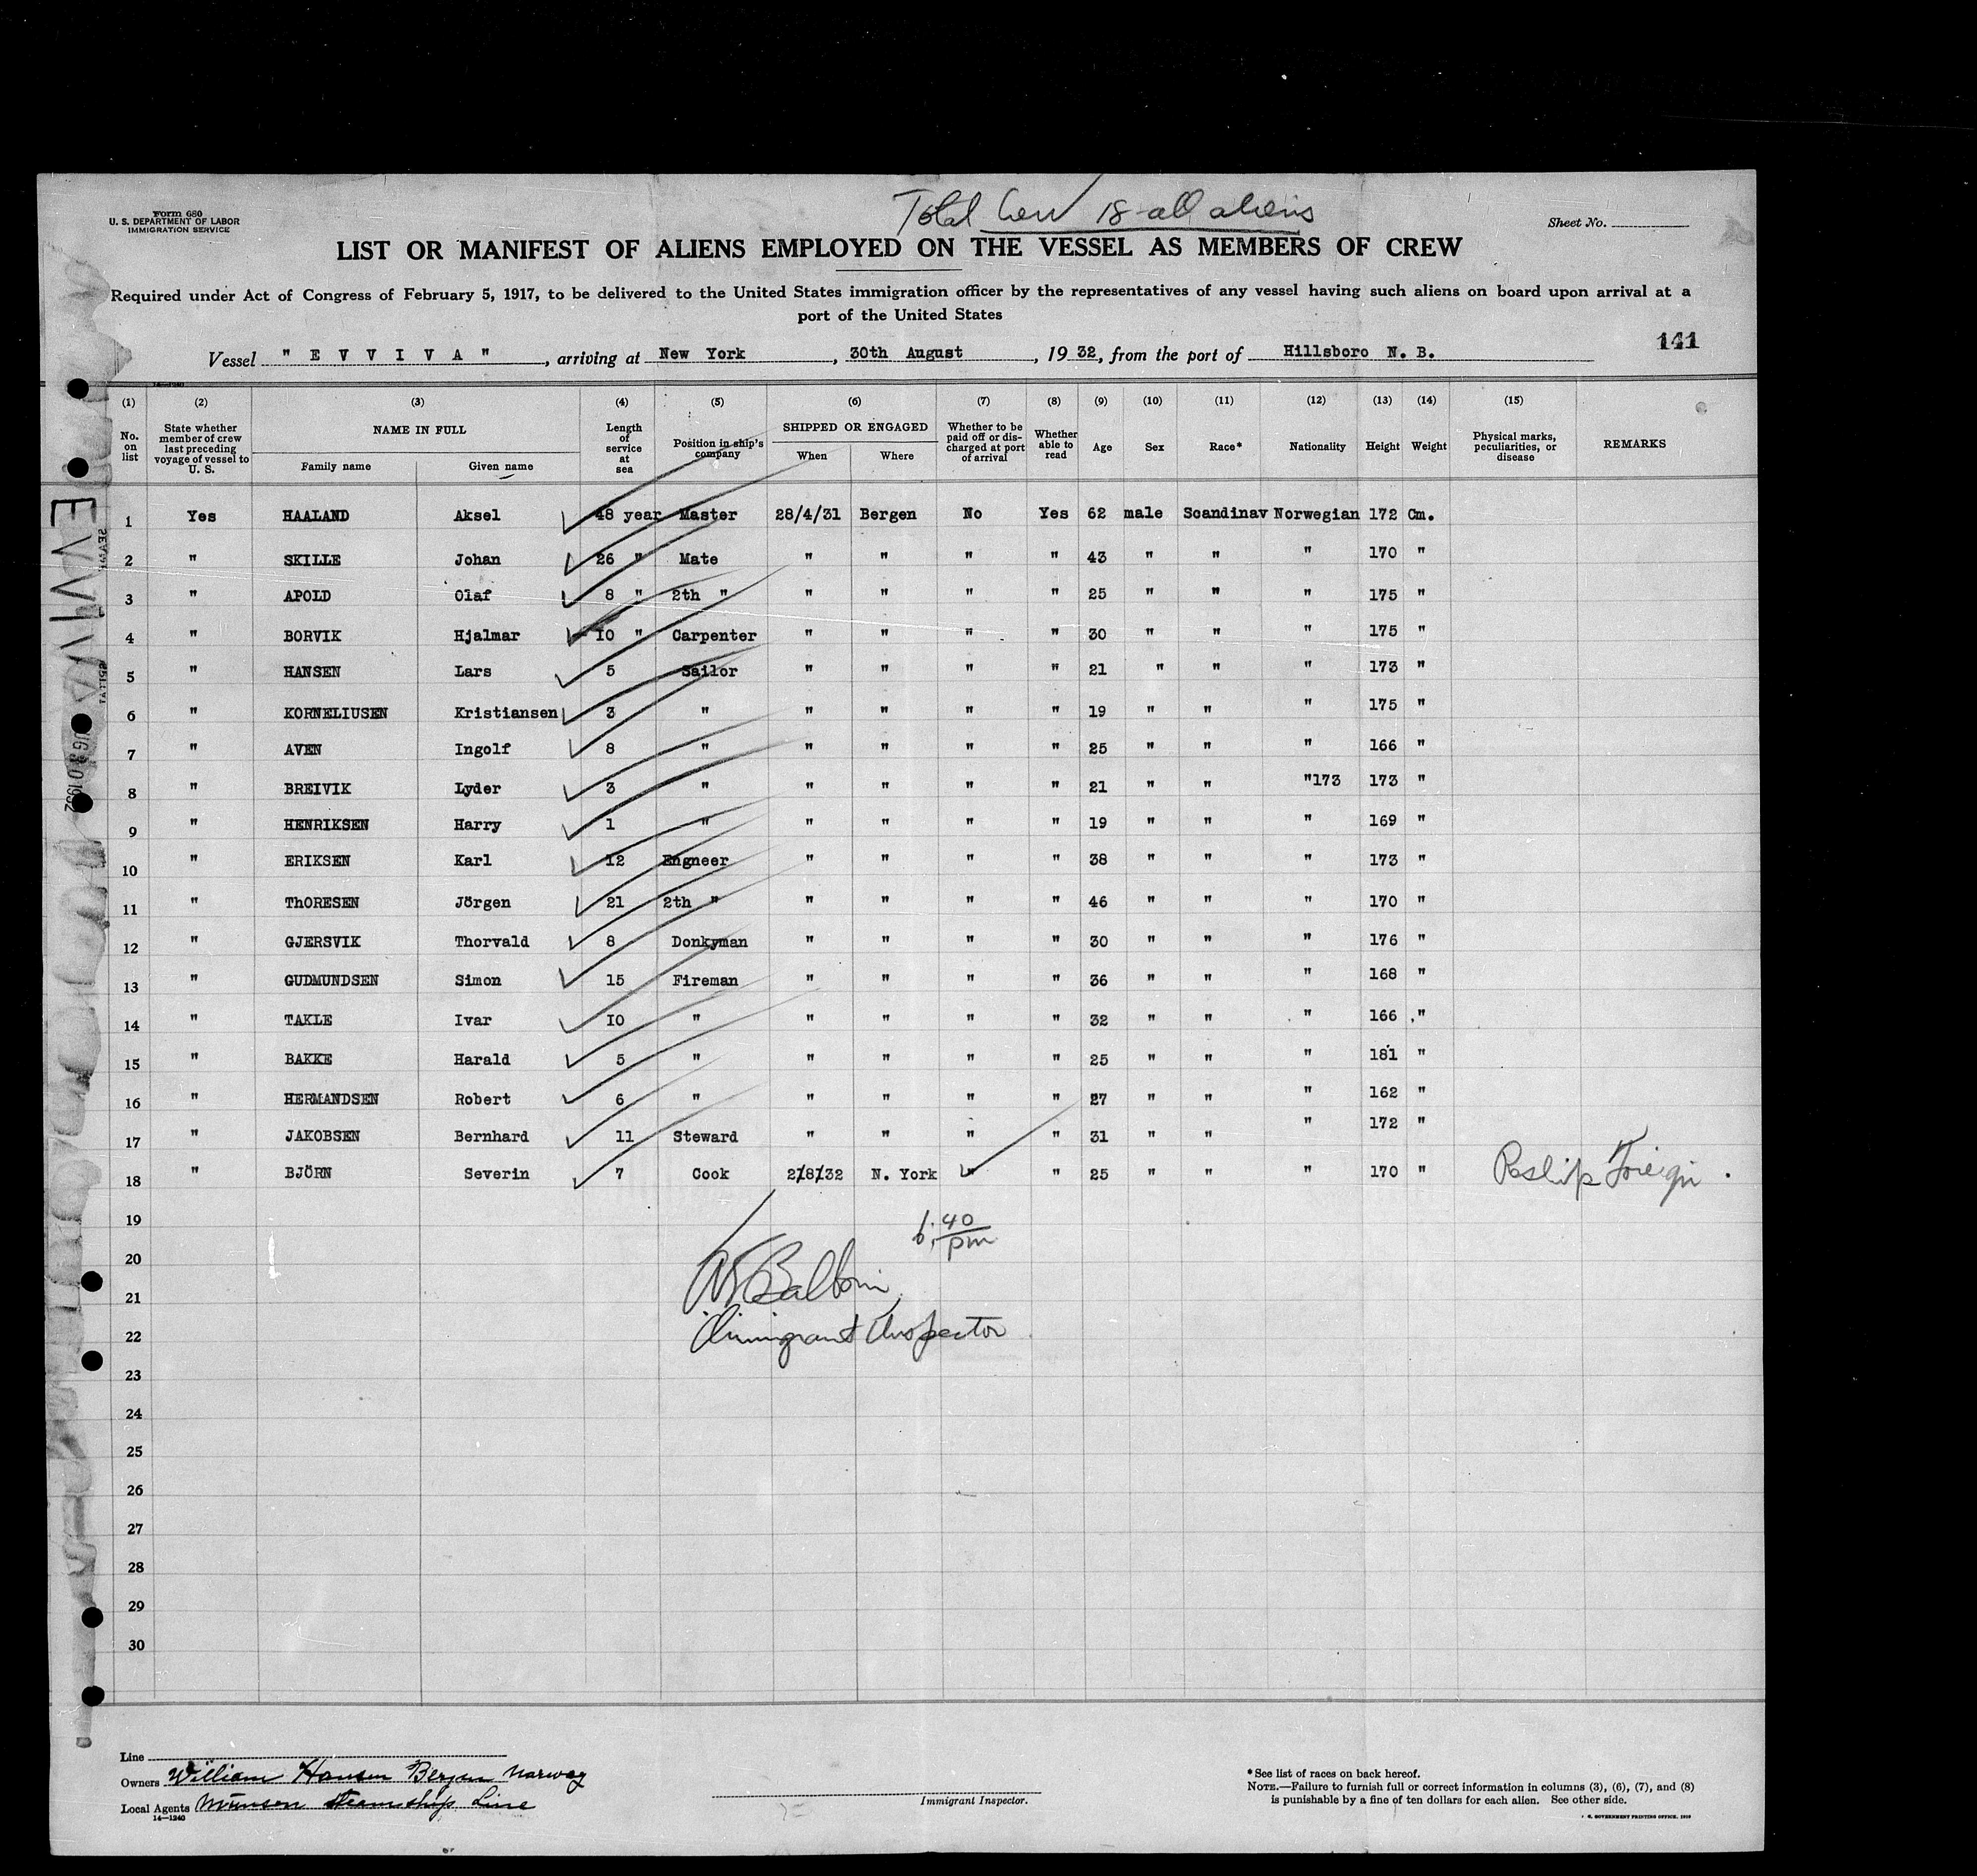 Total Crew 18 all aliens
Form 680
U. S. DEPARTMENT OF LABOR
IMMIGRATION SERVICE
Sheet No.
LIST OR MANIFEST OF ALIENS EMPLOYED ON THE VESSEL AS MEMBERS OF CREW
Required under Act of Congress of February 5, 1917, to be delivered to the United States immigration officer by the representatives of any vessel having such aliens on board upon arrival at a
port of the United States
141
Vessel " E V V I V A ", arriving at New York, 30th August, 1932, from the port of Hillsboro N. B.
(1) (2) (3) (4) (5) (6) (7) (8) (9) (10) (11) (12) (13) (14) (15)
No. on list State whether member of crew last preceding voyage of vessel to U. S. NAME IN FULL Family name Given name Length of service at sea Position in ship's company SHIPPED OR ENGAGED When Where Whether to be paid off or discharged at port of arrival Whether able to read Age Sex Race* Nationality Height Weight Physical marks, peculiarities, or disease REMARKS
1 Yes HAALAND Aksel 48 year Master 28/4/31 Bergen No Yes 62 male Scandinav Norwegian 172 Cm.
2 " SKILLE Johan 26 " Mate " " " " 43 " " " 170 "
3 " APOLD Olaf 8 " 2th " " " " " 25 " " " 175 "
4 " BORVIK Hjalmar I0 " Carpenter " " " " 30 " " " 175 "
5 " HANSEN Lars 5 Sailor " " " " 21 " " " 173 "
6 " KORNELIUSEN Kristiansen 3 " " " " " 19 " " " 175 "
7 " AVEN Ingolf 8 " " " " " 25 " " " 166 "
8 " BREIVIK Lyder 3 " " " " " 21 " " "173 173 "
9 " HENRIKSEN Harry 1 " " " " " 19 " " " 169 "
10 " ERIKSEN Karl 12 Engneer " " " " 38 " " " 173 "
11 " ThORESEN Jörgen 21 2th " " " " " 46 " " " 170 "
12 " GJERSVIK Thorvald 8 Donkyman " " " " 30 " " " 176 "
13 " GUDMUNDSEN Simon 15 Fireman " " " " 36 " " " 168 "
14 " TAKLE Ivar I0 " " " " " 32 " " " 166 "
15 " BAKKE Harald 5 " " " " " 25 " " " 181 "
16 " HERMANDSEN Robert 6 " " " " " 27 " " " 162 "
17 " JAKOBSEN Bernhard 11 Steward " " " " 31 " " " 172 "
18 " BJÖRN Severin 7 Cook 2/8/32 N. York " " 25 " " " 170 " Reship Foreign.
19
20
21
22
23
24
25
26
27
28
29
30
6.40 pm
Immigrant Inspector
EVVIVA
Line
Owners William Hansen Bergen Norway
Local Agents Munson Steamship Line
14—1240
Immigrant Inspector.
*See list of races on back hereof.
NOTE.—Failure to furnish full or correct information in columns (3), (6), (7), and (8)
is punishable by a fine of ten dollars for each alien. See other side.